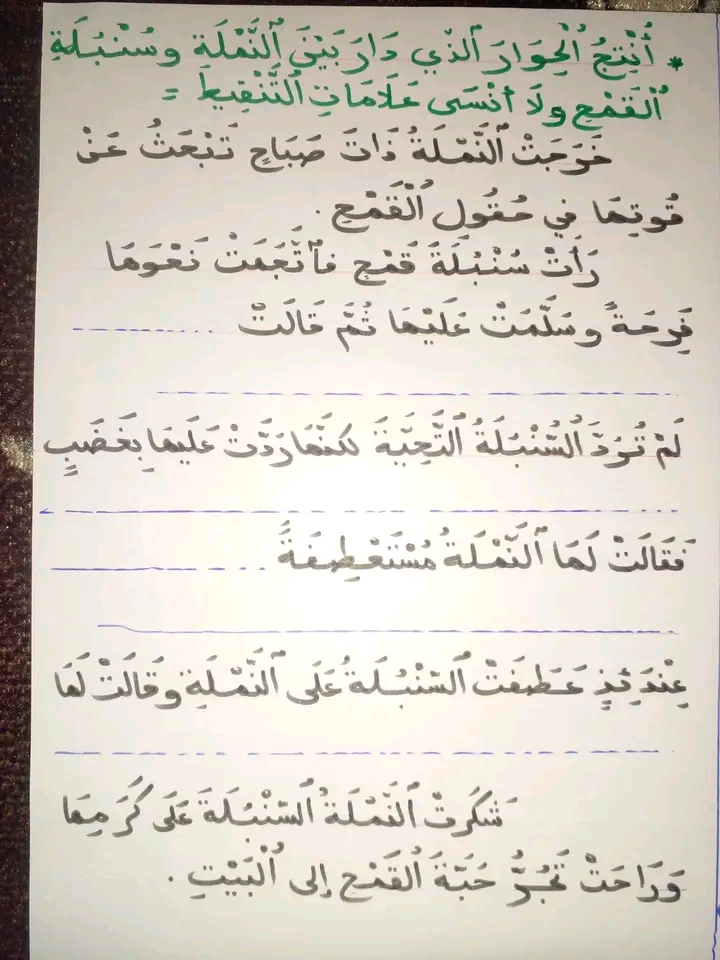 * أُنْتِجُ ٱلْحِوَارَ ٱلذي دَارَ بَيْنَ ٱلنَّمْلَةِ وسُنْبُلَةِ
ٱلْقَمْحِ ولَا أنْسَى عَلَامَاتِ ٱلتَّنْقِيطِ =
خَرَجَتْ ٱلنَّمْلَةُ ذَاتَ صَبَاحٍ تَبْحَثُ عَنْ
قُوتِهَا فِي حُقُولِ ٱلْقَمْحِ .
رَأَتْ سُنْبُلَةَ قَمْحٍ فٱتَّجَهَتْ نَحْوَهَا
فَرِحَةً وسَلَّمَتْ عَلَيْهَا ثُمَّ قَالَتْ ........
لَمْ تُرَدَّ ٱلسُّنْبُلَةُ ٱلتَّحِيَّةَ لكنَّهَا رَدَّتْ عَلَيهَا بِغَضَبٍ
فَقَالَتْ لَهَا ٱلنَّمْلَةُ مُسْتَعْطِفَةً ........
عِنْدَئِذٍ عَطَفَتْ ٱلسّنْبُلَةُ عَلَى ٱلنَّمْلَةِ وقَالَتْ لَهَا
شَكَرتْ ٱلنَّمْلَةُ ٱلسّنْبُلَةَ عَلَى كَرَمِهَا
وَرَاحَتْ تَجُرُّ حَبَّةَ ٱلْقَمْحِ إلى ٱلْبَيْتِ .